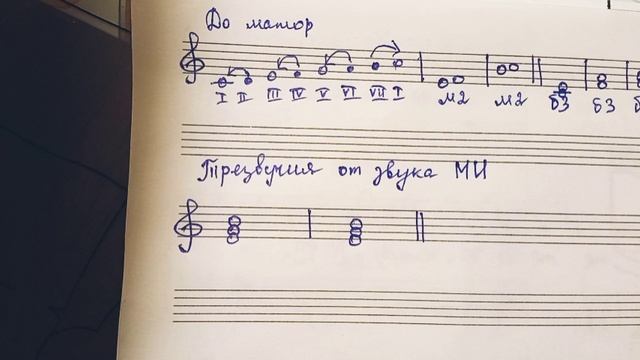 До мажор
I II III IV V VI VII I м2 м2 б3 б3
Трезвучия от звука МИ